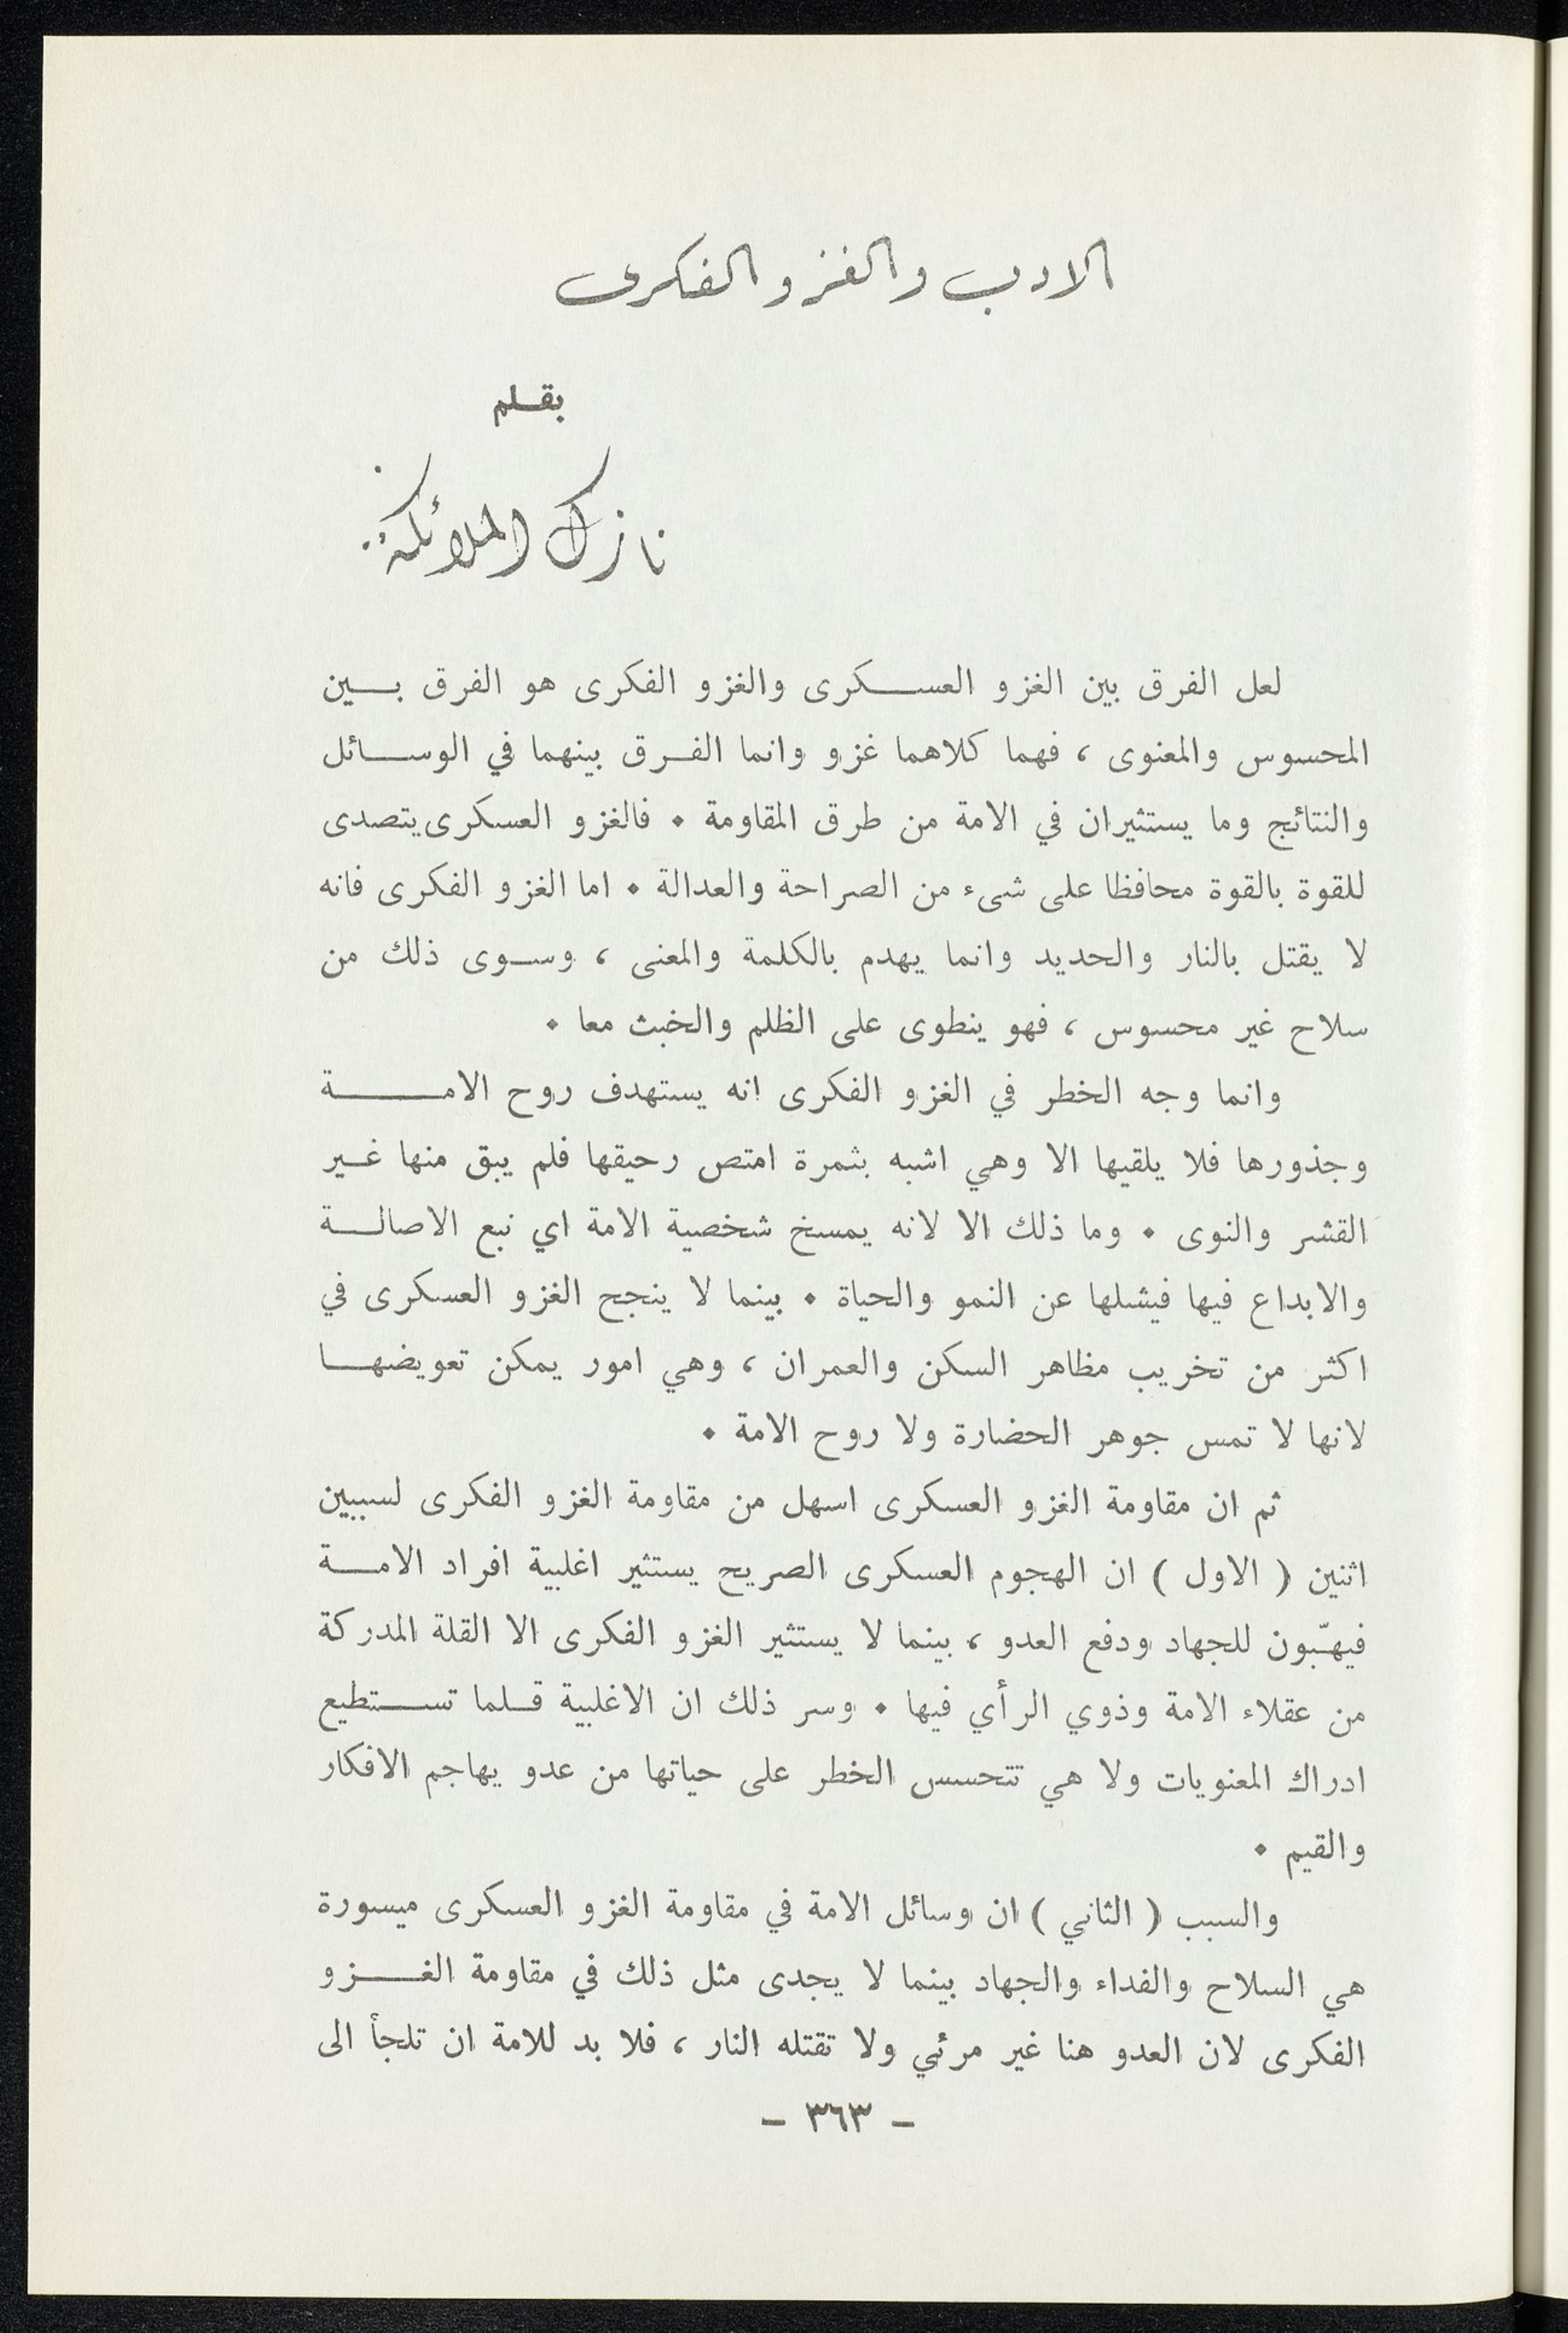 الادب والغزو الفكرى
بقلم
نازك الملائكة
لعل الفرق بين الغزو العسكرى والغزو الفكرى هو الفرق بين
المحسوس والمعنوى ، فهما كلاهما غزو وانما الفرق بينهما في الوسائل
والنتائج وما يستثيران في الامة من طرق المقاومة ٠ فالغزو العسكرى يتصدى
للقوة بالقوة محافظا على شىء من الصراحة والعدالة ٠ اما الغزو الفكرى فانه
لا يقتل بالنار والحديد وانما يهدم بالكلمة والمعنى ، وسوى ذلك من
سلاح غير محسوس ، فهو ينطوى على الظلم والخبث معا ٠
وانما وجه الخطر في الغزو الفكرى انه يستهدف روح الامة
وجذورها فلا يلقيها الا وهي اشبه بثمرة امتص رحيقها فلم يبق منها غير
القشر والنوى ٠ وما ذلك الا لانه يمسخ شخصية الامة اي نبع الاصالة
والابداع فيها فيشلها عن النمو والحياة ٠ بينما لا ينجح الغزو العسكرى في
اكثر من تخريب مظاهر السكن والعمران ، وهي امور يمكن تعويضها
لانها لا تمس جوهر الحضارة ولا روح الامة ٠
ثم ان مقاومة الغزو العسكرى اسهل من مقاومة الغزو الفكرى لسببين
اثنين ( الاول ) ان الهجوم العسكرى الصريح يستثير اغلبية افراد الامة
فيهبّون للجهاد ودفع العدو ، بينما لا يستثير الغزو الفكرى الا القلة المدركة
من عقلاء الامة وذوي الرأي فيها ٠ وسر ذلك ان الاغلبية قلما تستطيع
ادراك المعنويات ولا هي تتحسس الخطر على حياتها من عدو يهاجم الافكار
والقيم ٠
والسبب ( الثاني ) ان وسائل الامة في مقاومة الغزو العسكرى ميسورة
هي السلاح والفداء والجهاد بينما لا يجدى مثل ذلك في مقاومة الغزو
الفكرى لان العدو هنا غير مرئي ولا تقتله النار ، فلا بد للامة ان تلجأ الى
– ٣٦٣ –